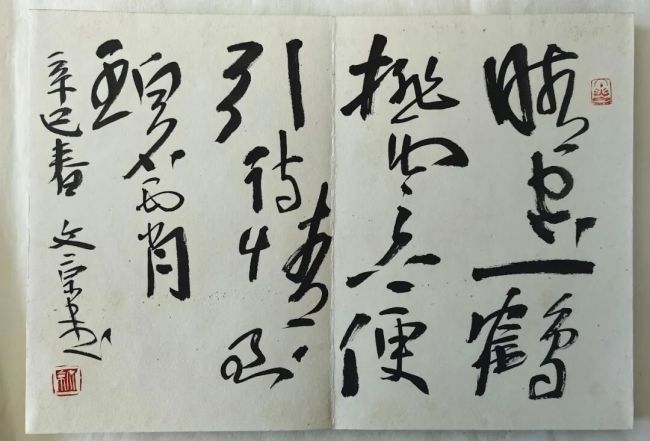 晴空一鶴
排雲上便
引詩情到
碧霄
辛巳春 文宗書